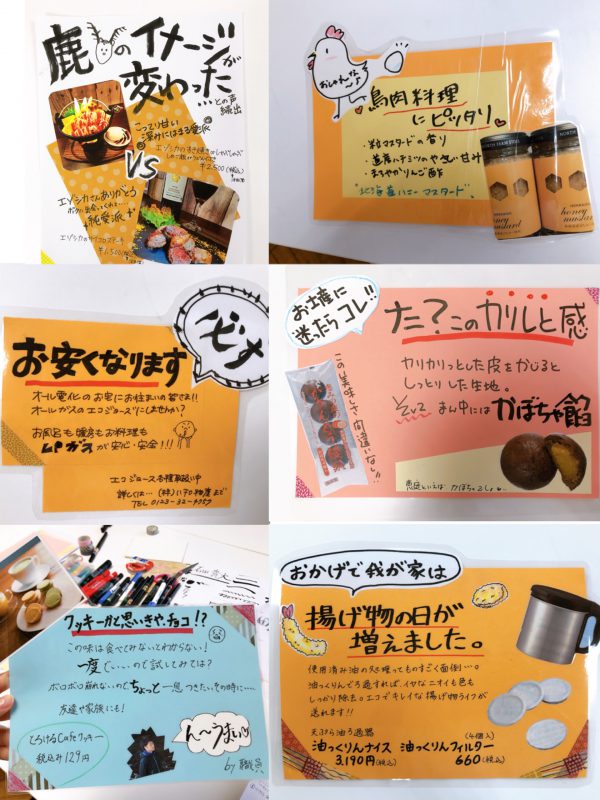 鹿のイメージが
変わった
…との声
続出
こってり甘い
深みにはまる愛派
¥2,500(税込)
VS
エゾシカさんありがとう
純愛派
エゾシカのサイコロステーキ
¥1,500
おしゃれな〜♪
鳥肉料理
にピッタリ
・粒マスタードの香り
・道産ハチミツのやさしい甘み
・まろやかりんご酢
北海道ハニーマスタード
NORTH FARM STOCK
honey
mustard
NORTH
HOKKAIDO
honey
mustard
お安くなります
オール電化のお宅にお住まいの皆さま!!
オールガスのエコジョーズにしませんか?
お風呂も暖房もお料理も
LPガスが安心・安全!!!
エコジョーズ各種取扱い中
TEL 0123-32-
お土産に
迷ったらコレ!!
た?このカリしと感
カリカリっとした皮をかじると
しっとりした生地。
まん中にはかぼちゃ餡
この美味しさ間違いない!!
恵庭といえばかぼちゃでしょ
クッキーかと思いきや、チョコ!?
この味は食べてみないとわからない!
一度でい〜、ので試してみては?
ボロボロ崩れないのでちょっと一息つきたい、その時に……
友達や家族にも!
とろけるCafeクッキー
税込み129円
ん〜うまい
by 職員
おかげで我が家は
揚げ物の日が
増えました。
使用済み油の処理ってものすごく面倒…。
油っくりんでろ過すれば、イヤなニオイも色も
しっかり除去。エコでキレイな揚げ物ライフが
送れます!!
天ぷら油ろ過器
(4個入)
油っくりんナイス 油っくりんフィルター
3,190円(税込) 660(税込)